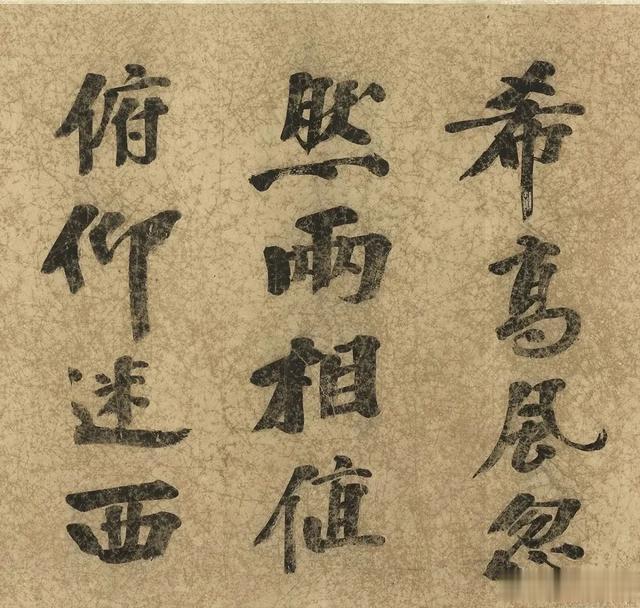 希高風忽
然兩相值
俯仰迷西